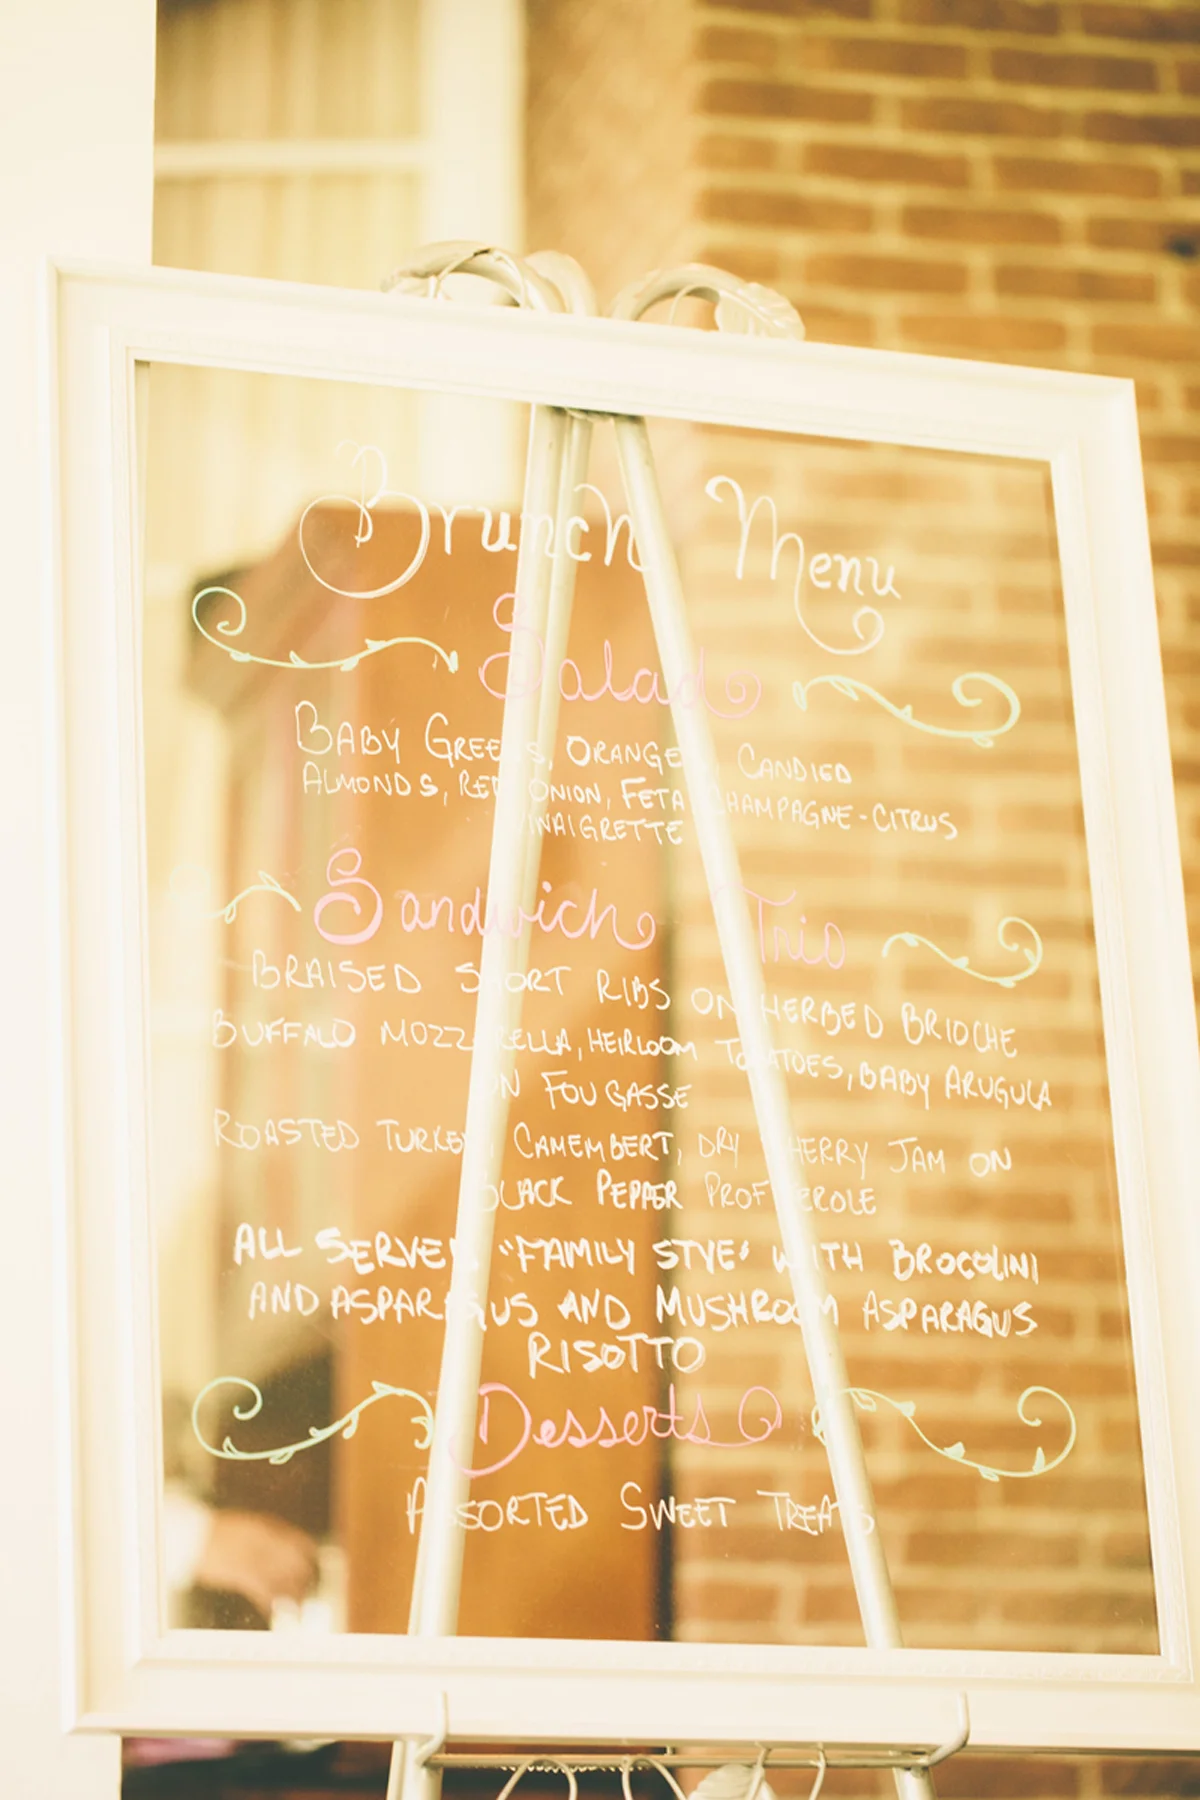 Brunch Menu
Salad
BABY GREENS, ORANGES, CANDIED
ALMONDS, RED ONION, FETA CHAMPAGNE-CITRUS
VINAIGRETTE
Sandwich Trio
BRAISED SHORT RIBS ON HERBED BRIOCHE
BUFFALO MOZZARELLA, HEIRLOOM TOMATOES, BABY ARUGULA
ON FOUGASSE
ROASTED TURKEY, CAMEMBERT, DRY CHERRY JAM ON
BLACK PEPPER PROFITEROLE
ALL SERVED "FAMILY STYE" WITH BROCOLINI
AND ASPARAGUS AND MUSHROOM ASPARAGUS
RISOTTO
Desserts
ASSORTED SWEET TREATS